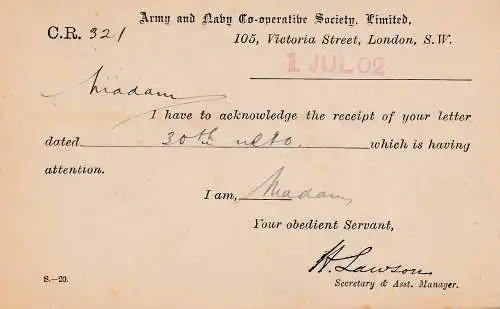 Army and Navy Co-operative Society, Limited,
C.R. 321
105, Victoria Street, London, S.W.
1 JUL 02
Madam
I have to acknowledge the receipt of your letter
dated 30th ulto. which is having
attention.
I am, Madam,
Your obedient Servant,
H. Lawson
Secretary & Asst. Manager.
S.-20.